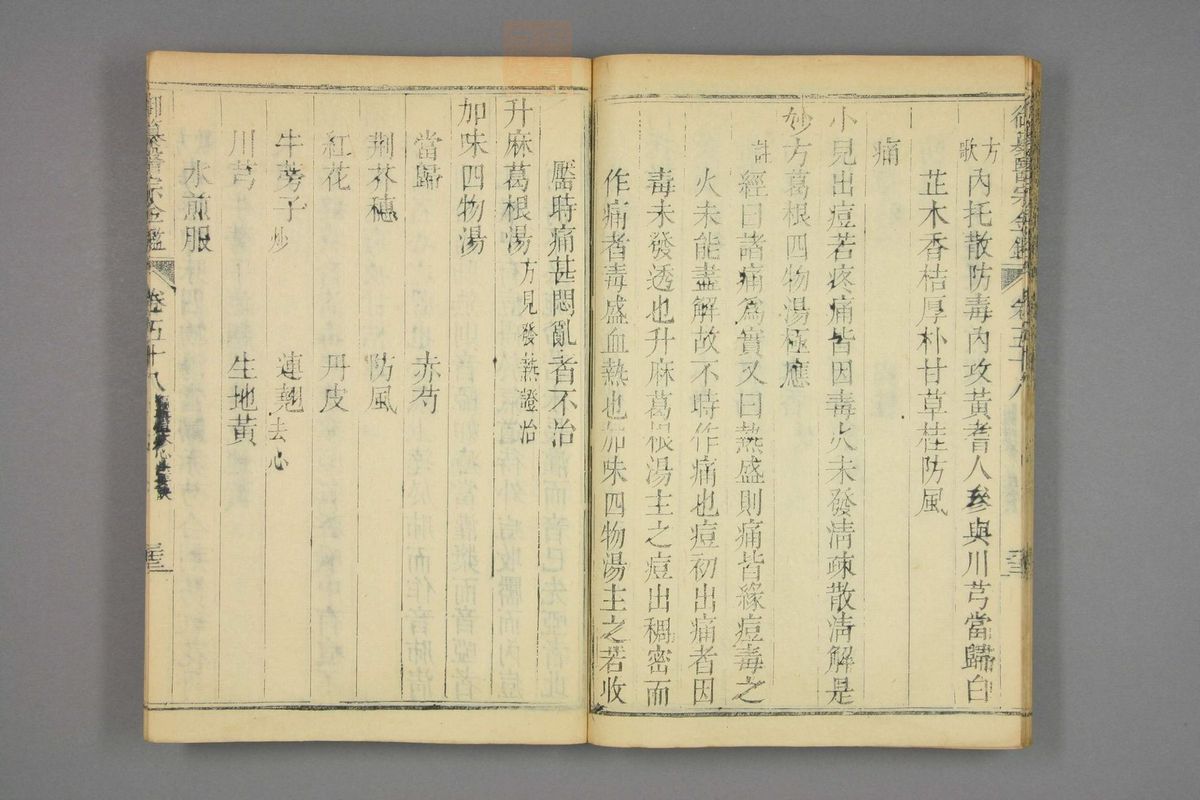 御纂醫宗金鑑 卷五十八
方歌 內托散防毒內攻黃耆人參與川芎當歸白
芷木香桔厚朴甘草桂防風
痛
小兒出痘若疼痛皆因毒火未發清疎散清解是
妙方葛根四物湯極應
註 經曰諸痛為實又曰熱盛則痛皆緣痘毒之
火未能盡解故不時作痛也痘初出痛者因
毒未發透也升麻葛根湯主之痘出稠密而
作痛者毒盛血熱也加味四物湯主之若收
靨時痛甚悶亂者不治
升麻葛根湯 方見發熱證治
加味四物湯
當歸 赤芍
荆芥穗 防風
紅花 丹皮
牛蒡子炒 連翹去心
川芎 生地黃
水煎服
御纂醫宗金鑑 卷五十八